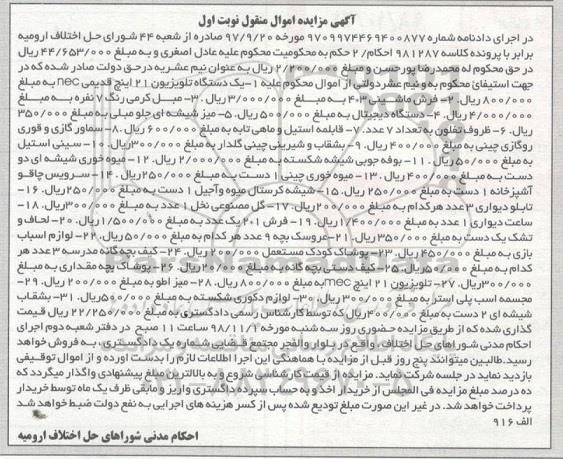 آگهی مزایده اموال منقول نوبت اول
در اجرای دادنامه شماره ۹۷۰۹۹۷۴۴۶۹۴۰۰۸۷۷ مورخه ۹۷/۹/۲۰ صادره از شعبه ۴۴ شورای حل اختلاف ارومیه
برابر با پرونده کلاسه ۹۸۱۲۸۷ احکام/ ۲ حکم به محکومیت محکوم علیه عادل اصغری و به مبلغ ۴۴/۶۵۳/۰۰۰ ریال
در حق محکوم له محمدرضا پور حسن و مبلغ ۲/۲۰۰/۰۰۰ ریال به عنوان نیم عشریه در حق دولت صادر شده که در
جهت استیفائ محکوم به و نیم عشر دولتی از اموال محکوم علیه ۱- یک دستگاه تلویزیون ۲۱ اینچ قدیمی nec به مبلغ
۸۰۰/۰۰۰ ریال ۲- فرش ماشینی ۳،۴ به مبلغ ۳/۰۰۰/۰۰۰ ریال ۳- مبل کرمی رنگ ۷ نفره به مبلغ
۴/۰۰۰/۰۰۰ ریال ۴- دستگاه دیجیتال به مبلغ ۵۰۰/۰۰۰ ریال ۵- میز شیشه ای جلو مبلی به مبلغ ۳۵۰/۰۰۰
ریال ۶- ظروف تفلون به تعداد ۷ عدد ۷- قابلمه استیل و ماهی تابه به مبلغ ۶۰۰/۰۰۰ ریال ۸- سماور گازی و قوری
روگازی چینی به مبلغ ۴۰۰/۰۰۰ ریال ۹- بشقاب و شیرینی چینی گلدار به مبلغ ۳۰۰/۰۰۰ ریال ۱۰- سینی استیل
به مبلغ ۵۰/۰۰۰ ریال ۱۱- بوفه چوبی شیشه شکسته به مبلغ ۲/۰۰۰/۰۰۰ ریال ۱۲- میوه خوری شیشه ای دو
دست به مبلغ ۴۰۰/۰۰۰ ریال ۱۳- میوه خوری چینی ۱ دست به مبلغ ۲۵۰/۰۰۰ ریال ۱۴- سرویس چاقو
آشپزخانه ۱ دست به مبلغ ۲۵۰/۰۰۰ ریال ۱۵- شیشه کرستال میوه و آجیل ۱ دست به مبلغ ۲۵۰/۰۰۰ ریال ۱۶-
تابلو دیواری ۳ عدد هر کدام به مبلغ ۲۰۰/۰۰۰ ریال ۱۷- گل مصنوعی نخل ۱ عدد به مبلغ ۳۰۰/۰۰۰ ریال ۱۸-
ساعت دیواری ۱ عدد به مبلغ ۱۷/۰۰۰ ریال ۱۹- فرش ۲،۱ یک عدد به مبلغ ۱/۵۰۰/۰۰۰ ریال ۲۰- لحاف و
تشک یک دست به مبلغ ۳۵۰/۰۰۰ ریال ۲۱- عروسک بچه ۹ عدد هر کدام به مبلغ ۵۰/۰۰۰ ریال ۲۲- لوازم اسباب
بازی به مبلغ ۴۵۰/۰۰۰ ریال ۲۳- پوشاک کودک مستعمل ۲۰۰/۰۰۰ ریال ۲۴- کیف بچه گانه مدرسه ۳ عدد هر
کدام به مبلغ ۵۰/۰۰۰ ریال ۲۵- کیف دستی بچه گانه به مبلغ ۲۰/۰۰۰ ریال ۲۶- پوشاک بچه مقداری به مبلغ
۳۰۰/۰۰۰ ریال ۲۷- تلویزیون ۲۱ اینچ nec به مبلغ ۸۰۰/۰۰۰ ریال ۲۸- میز اطو به مبلغ ۲۰۰/۰۰۰ ریال ۲۹-
مجسمه اسب پلی استر به مبلغ ۳۰۰/۰۰۰ ریال ۳۰- لوازم دکوری شکسته به مبلغ ۵۰۰/۰۰۰ ریال ۳۱- بشقاب
شیشه ای ۲ دست به مبلغ ۴۰۰/۰۰۰ ریال که توسط کارشناس رسمی دادگستری به مبلغ ۲۲/۲۵۰/۰۰۰ ریال قیمت
گذاری شده که از طریق مزایده حضوری روز سه شنبه مورخه ۹۸/۱۱/۲ ساعت ۱۱ صبح در دفتر شعبه دوم اجرای
احکام مدنی شوراهای حل اختلاف واقع در بلوار والفجر مجتمع قضایی شماره یک دادگستری، به فروش خواهد
رسید. طالبین میتوانند پنج روز قبل از مزایده با هماهنگی این اجرا اطلاعات لازم را بدست آورده و از اموال توقیفی
بازدید نماید در جلسه شرکت نماید. مزایده از قیمت کارشناسی شروع و به بالاترین مبلغ پیشنهادی واگذار میگردد که
ده در صد مبلغ مزایده فی المجلس از خریدار اخذ و به حساب سپرده دادگستری واریز و مابقی ظرف یک ماه توسط خریدار
پرداخت خواهد شد. در غیر این صورت مبلغ تودیع شده پس از کسر هزینه های اجرایی به نفع دولت ضبط خواهد شد
الف ۹۱۶
احکام مدنی شوراهای حل اختلاف ارومیه